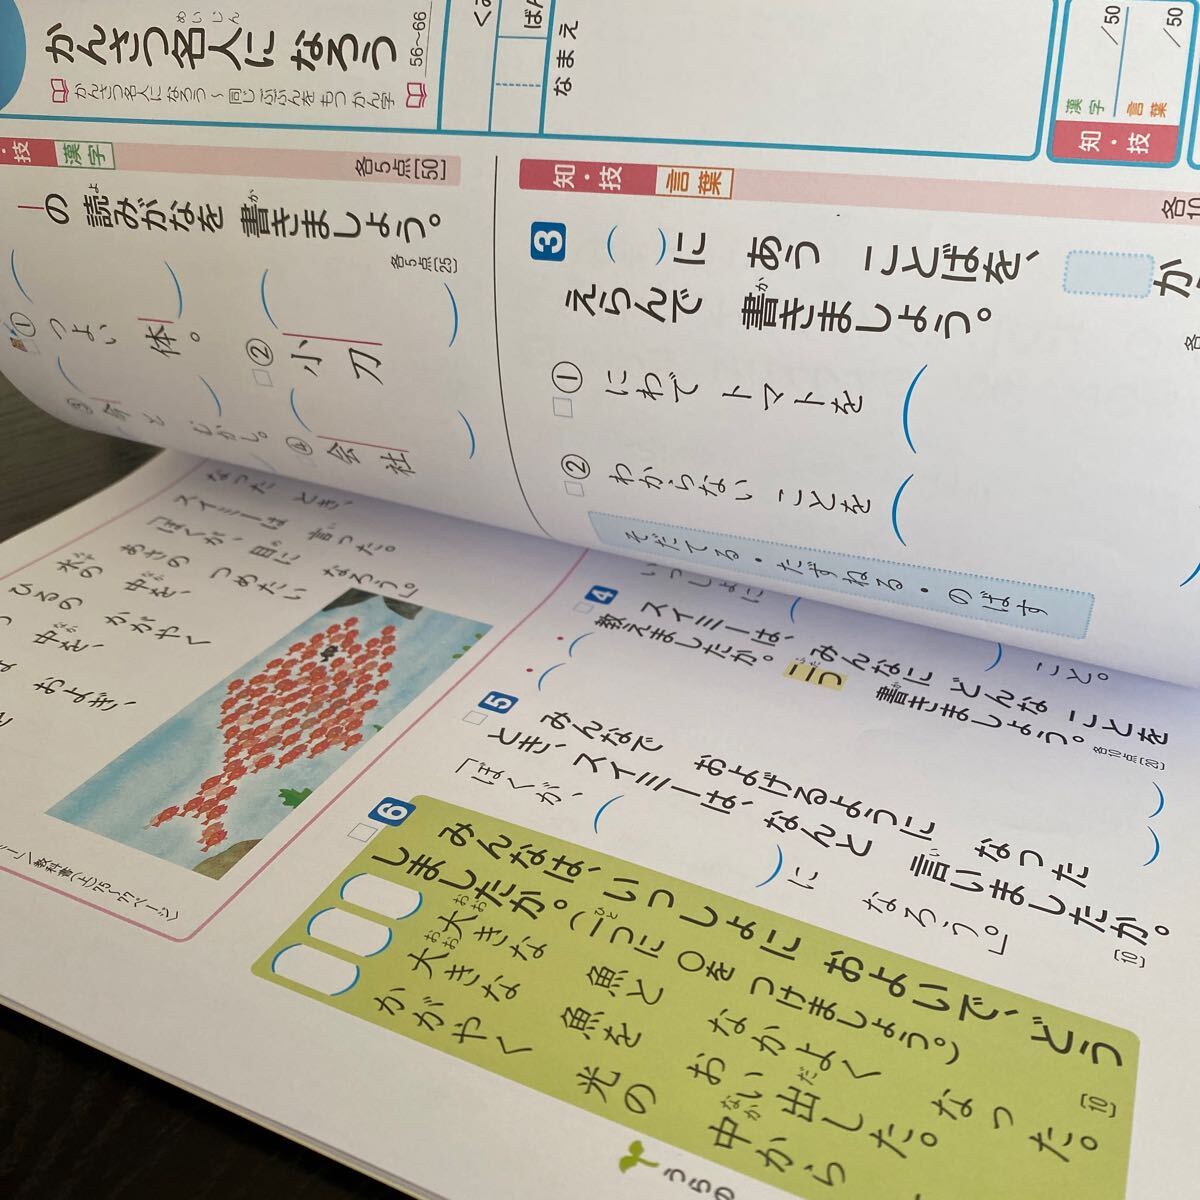 かんさつ名人に なろう
めいじん
かんさつ名人になろう〜同じ ぶぶんを もつ かん字
56〜66
なまえ
漢字
/50
言葉
/50
知・技
技
漢字
各5点[50]
の 読みがなを 書きましょう。
よ
か
各5点[25]
①
つよい 体。
②
小刀
③
今と むかし。
④
会社
知・技
言葉
各10
3
( )に あう ことばを、
えらんで 書きましょう。
か
①
にわで トマトを
②
わからない ことを
そだてる・たずねる・のばす
か
なった とき、
スイミーは 言った。
「ぼくが、目に なろう。」
あさの つめたい
水の 中を、
ひるの かがやく
中を、
およぎ、
教科書(上)75〜77ページ〉
いっしょに
こと。
4
スイミーは、みんなに どんな ことを
教えましたか。二つ 書きましょう。
ふた
各10点[20]
5
みんなで およげるように なった
とき、スイミーは、なんと 言いましたか。
い
[10]
「ぼくが、
に なろう。」
6
みんなは、いっしょに およいで、どう
しましたか。(一つに ○を つけましょう。)
ひと
[10]
大きな 魚と なかよく なった。
おお
大きな 魚を おい出した。
おお
だ
かがやく 光の 中から
なか
うらの